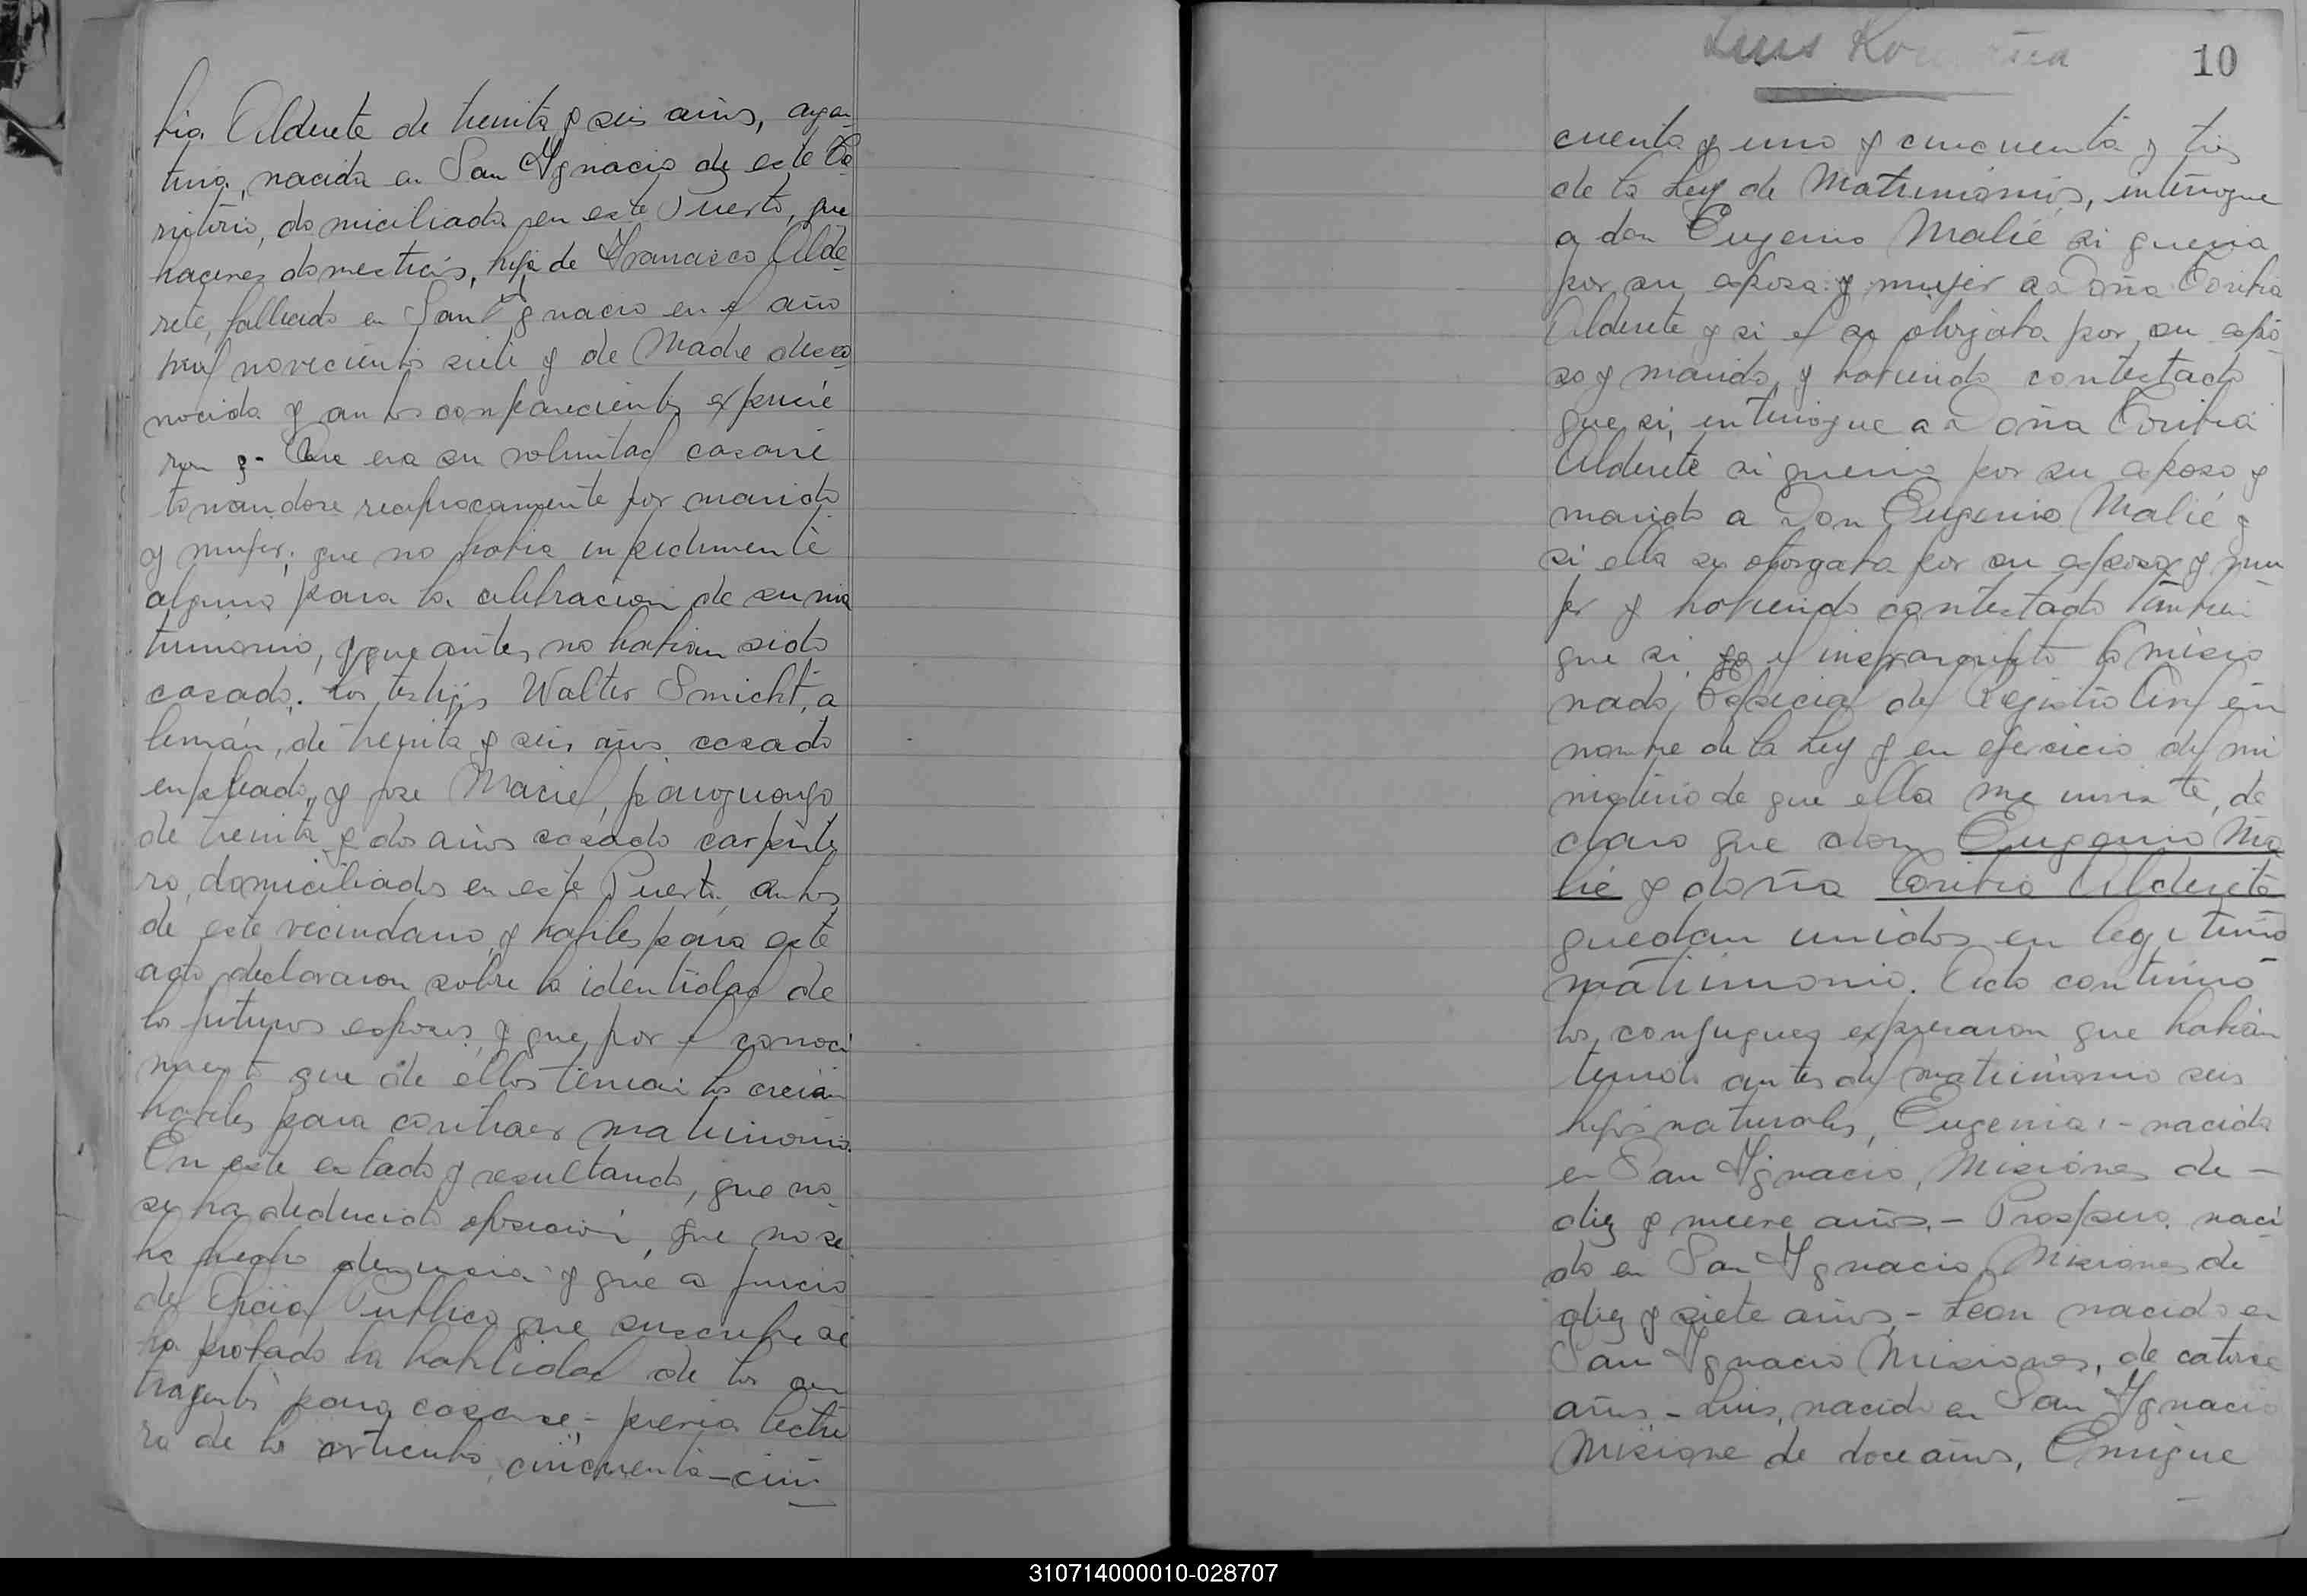 bia Alderete de treinta y seis años, argen
tina, nacida en San Ygnacio de este te
rritorio, domiciliada en este Puerto, que
haceres domesticos, hija de Francisco Alde
rete, fallecido en San Ygnacio en el año
mil novecientos siete y de Madre desco
nocida y ambos comparecientes expusie
ron :- Que era su voluntad casarse
tomandose reciprocamente por marido
y mujer; que no habia impedimento
alguno para la celebracion de su ma
trimonio, y que antes no habian sido
casados. Los testigos Walter Smicht, a
lemán, de treinta y seis años casado
empleado, y jose Maciel, paraguayo
de treinta y dos años casado carpinte
ro, domiciliados en este Puerto, ambos
de este vecindario, y habiles para este
acto declararon sobre la identidad de
los futuros esposos, y que por el conoci
miento que de ellos tenian los creian
habiles para contraer matrimonio.
En este estado y resultando, que no
se ha deducido oposicion, que no se
ha hecho denuncia y que a juicio
del Oficial Publico que suscribe se
ha probado la habilidad de los con
trayentes para casarse, previa lectu
ra de los articulos, cincuenta - cin
Luis
10
cuenta y uno y cincuenta y tres
de la Ley de Matrimonios, interrogue
a don Eugenio Malié si queria
por su esposa y mujer a Doña Toribia
Alderete y si el se otorgaba por su espo
so y marido, y habiendo contestado
que si, interrogue a Doña Toribia
Alderete si queria por su esposo y
marido a Don Eugenio Malié y
si ella se otorgaba por su esposa y mu
jer y habiendo contestado tambien
que si, yo el infrascripto Comisio
nado Especial del Registro Civil en
nombre de la Ley y en ejercicio del mi
nisterio de que ella me inviste, de
claro que don Eugenio Ma
lié y doña Toribia Alderete
quedan unidos en legitimo
matrimonio. Acto continuo
los conjugues expresaron que habian
tenido antes del matrimonio seis
hijos naturales, Eugenia :- nacida
en San Ygnacio, Misiones de -
diez y nueve años. - Prospero, naci
do en San Ygnacio Misiones de
diez y siete años, - Leon nacido en
San Ygnacio Misiones, de catorce
años - Luis, nacido en San Ygnacio
Misione de doce años, Enrique
310714000010-028707